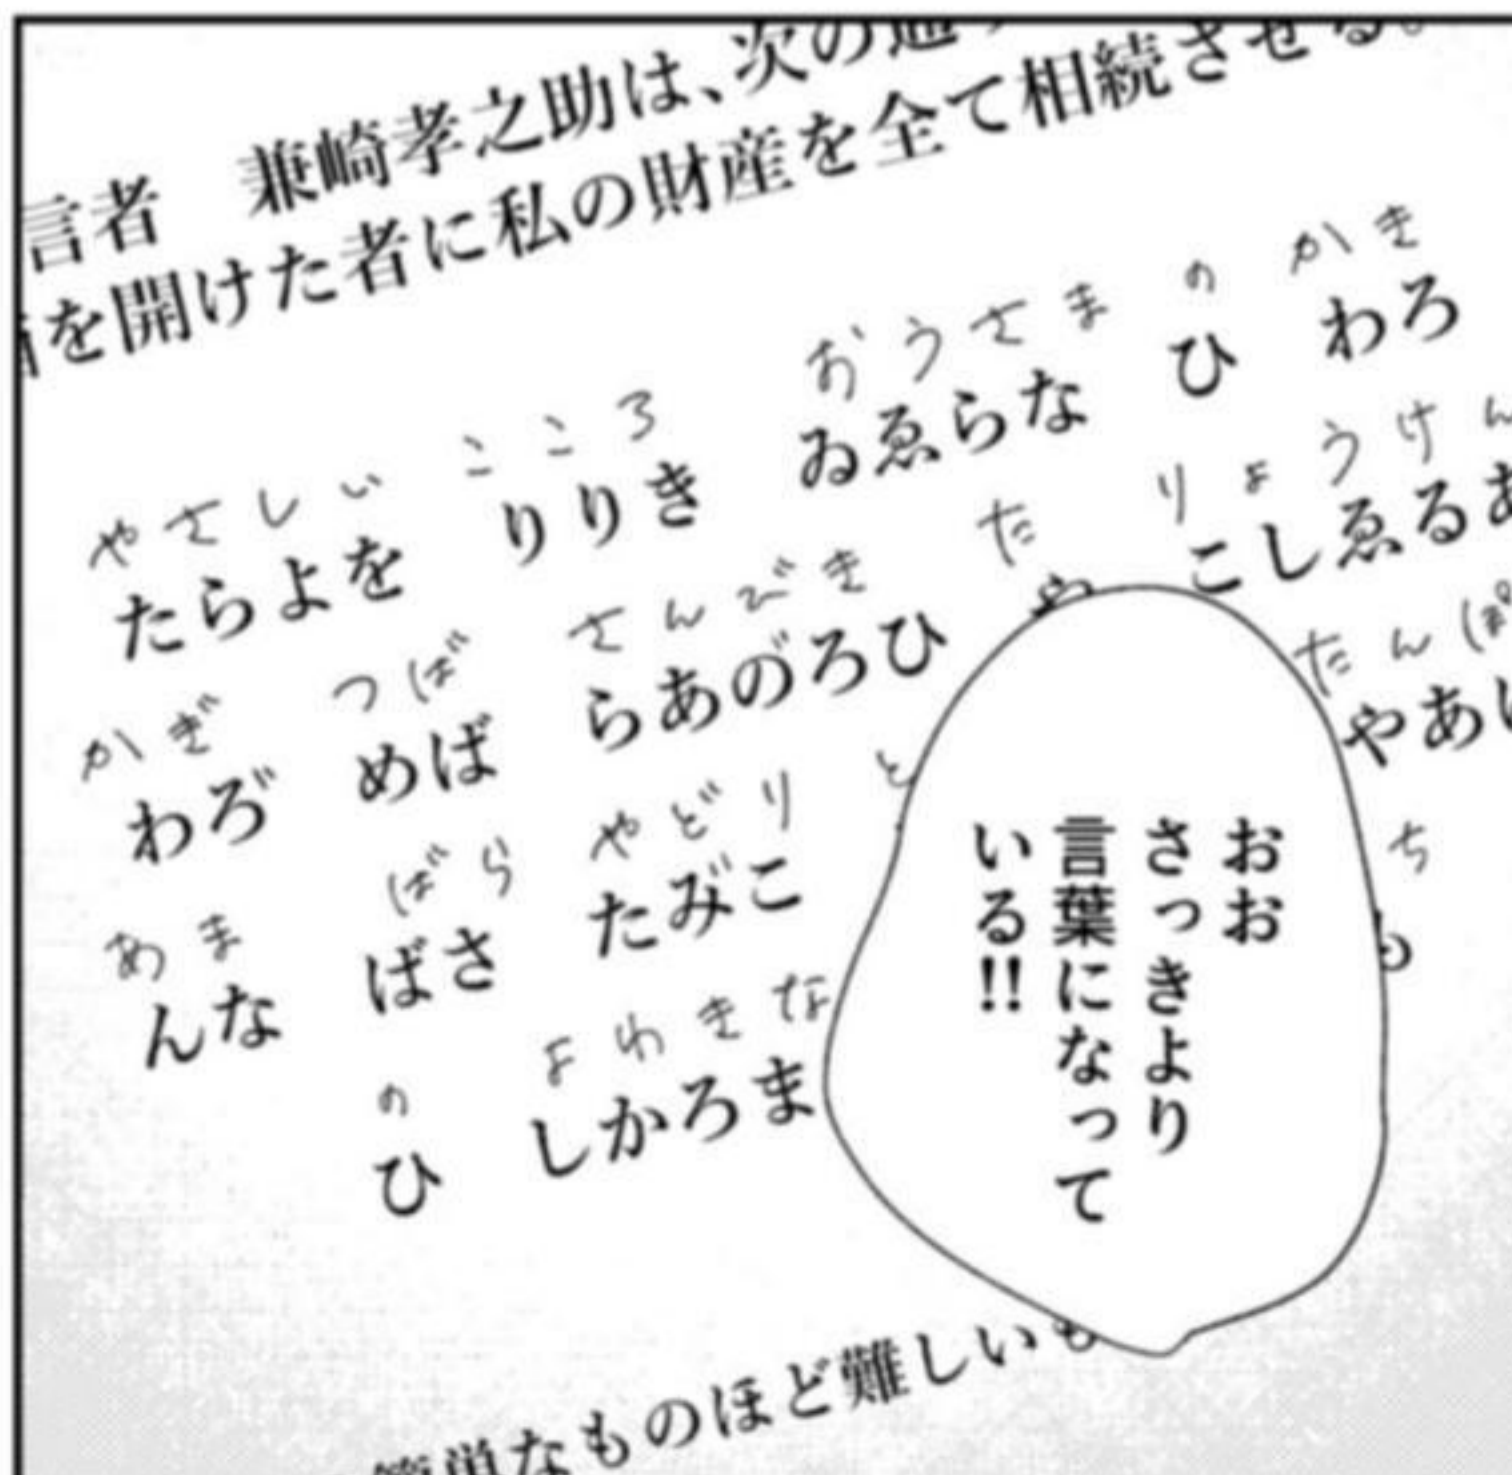 言者　兼崎孝之助は、次の通
を開けた者に私の財産を全て相続させる。
やさしい　こころ　おうさま　の　かき
たらよを　りりき　ゐゑらな　ひ　わろ
かぎ　つば　さんびき　た　りょうけん
わろ゛　めば　らあの゛ろひ　や　こしゑるあ
あま　ばら　やどり　と　たんぽ
んな　ばさ　たみ゛こ　やあ
の　よわきな　ち
ひ　しかろま　も
簡単なものほど難しいも
おお
さっきより
言葉になって
いる!!